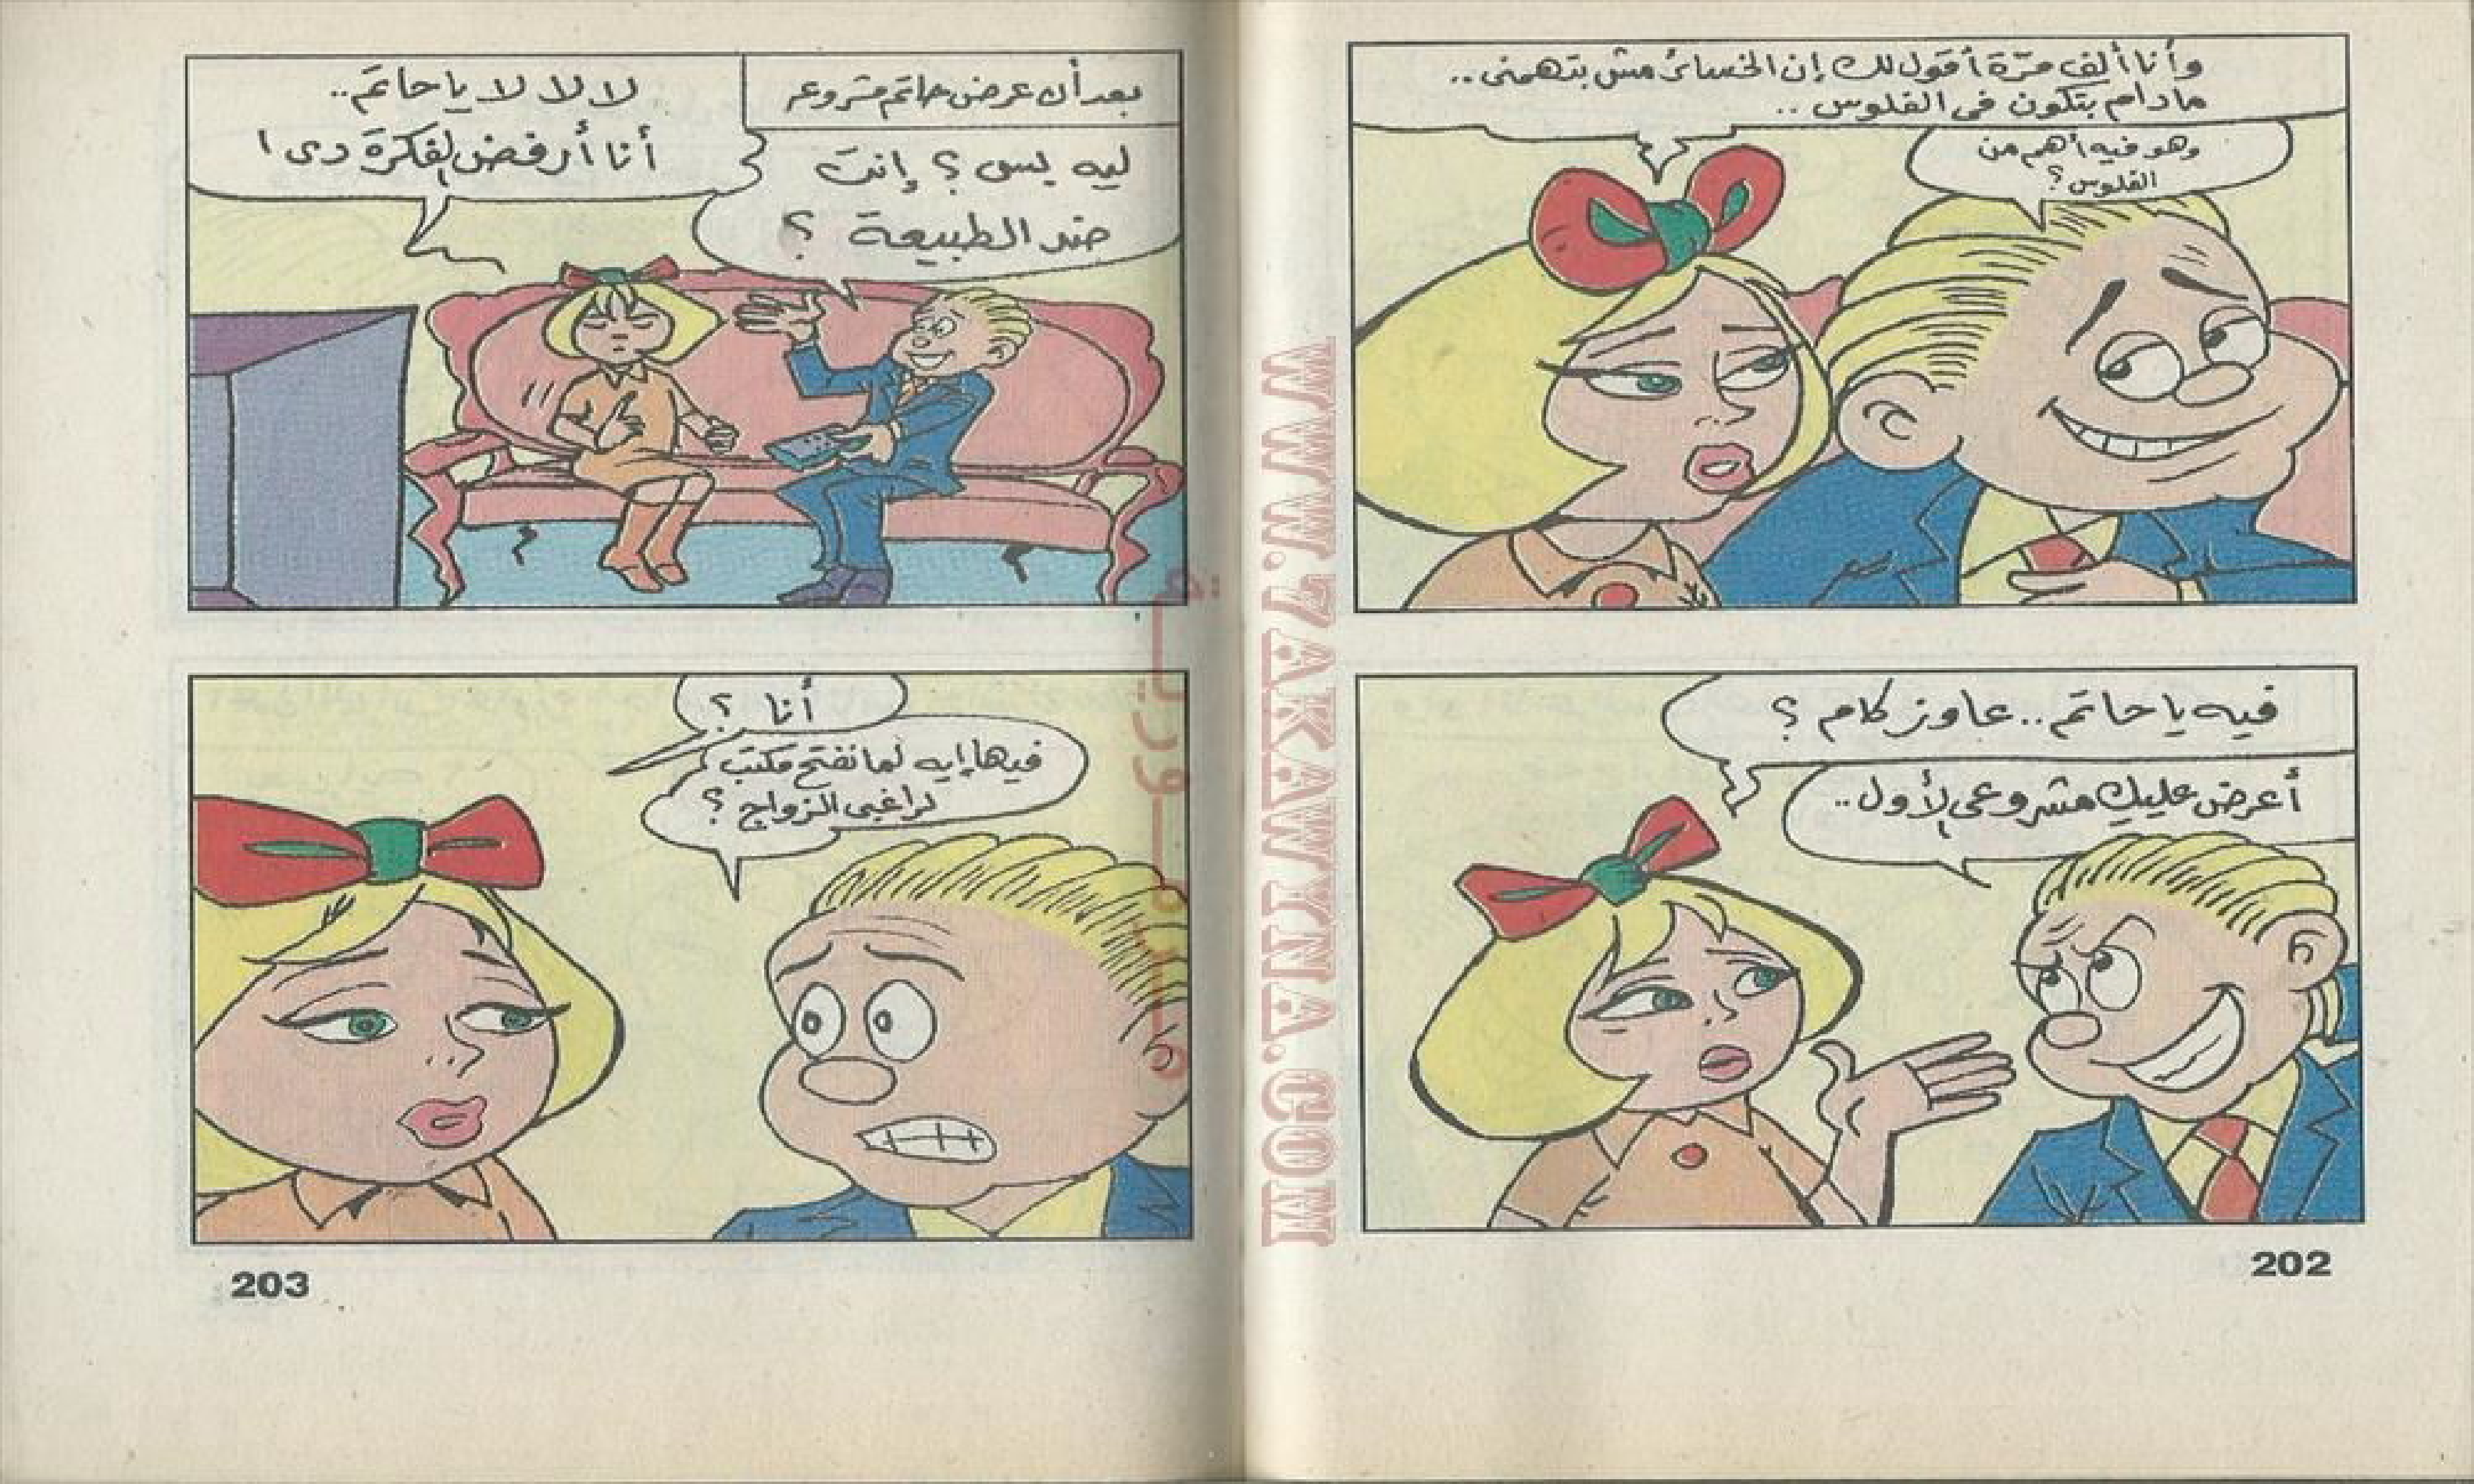 وأنا ألف مرّة أقول لك إن الخسائر مش بتهمنى..
مادام بتكون فى الفلوس ..
وهو فيه أهم من
الفلوس ؟
فيه يا حاتم .. عاوز كام ؟
أعرض عليك مشروعى الأول..
202
بعد أن عرض حاتم مشروعه
لا لا لا يا حاتم ..
أنا أرفض الفكرة دى !
ليه بس ؟ إنت
ضد الطبيعة ؟
أنا ؟
فيها إيه لما نفتح مكتب
لراغبى الزواج ؟
203
WWW.7AKAWINA.COM